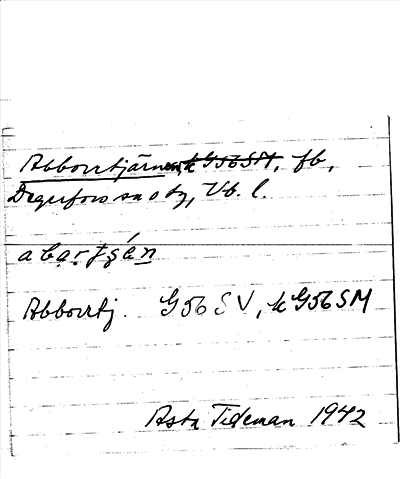 Abborrtjärnen, k G56SM, fb,
Degerfors sn o tg, Vb. l.
abartşén
Abborrtj. G56 SV, k G56SM
Asta Tideman 1942